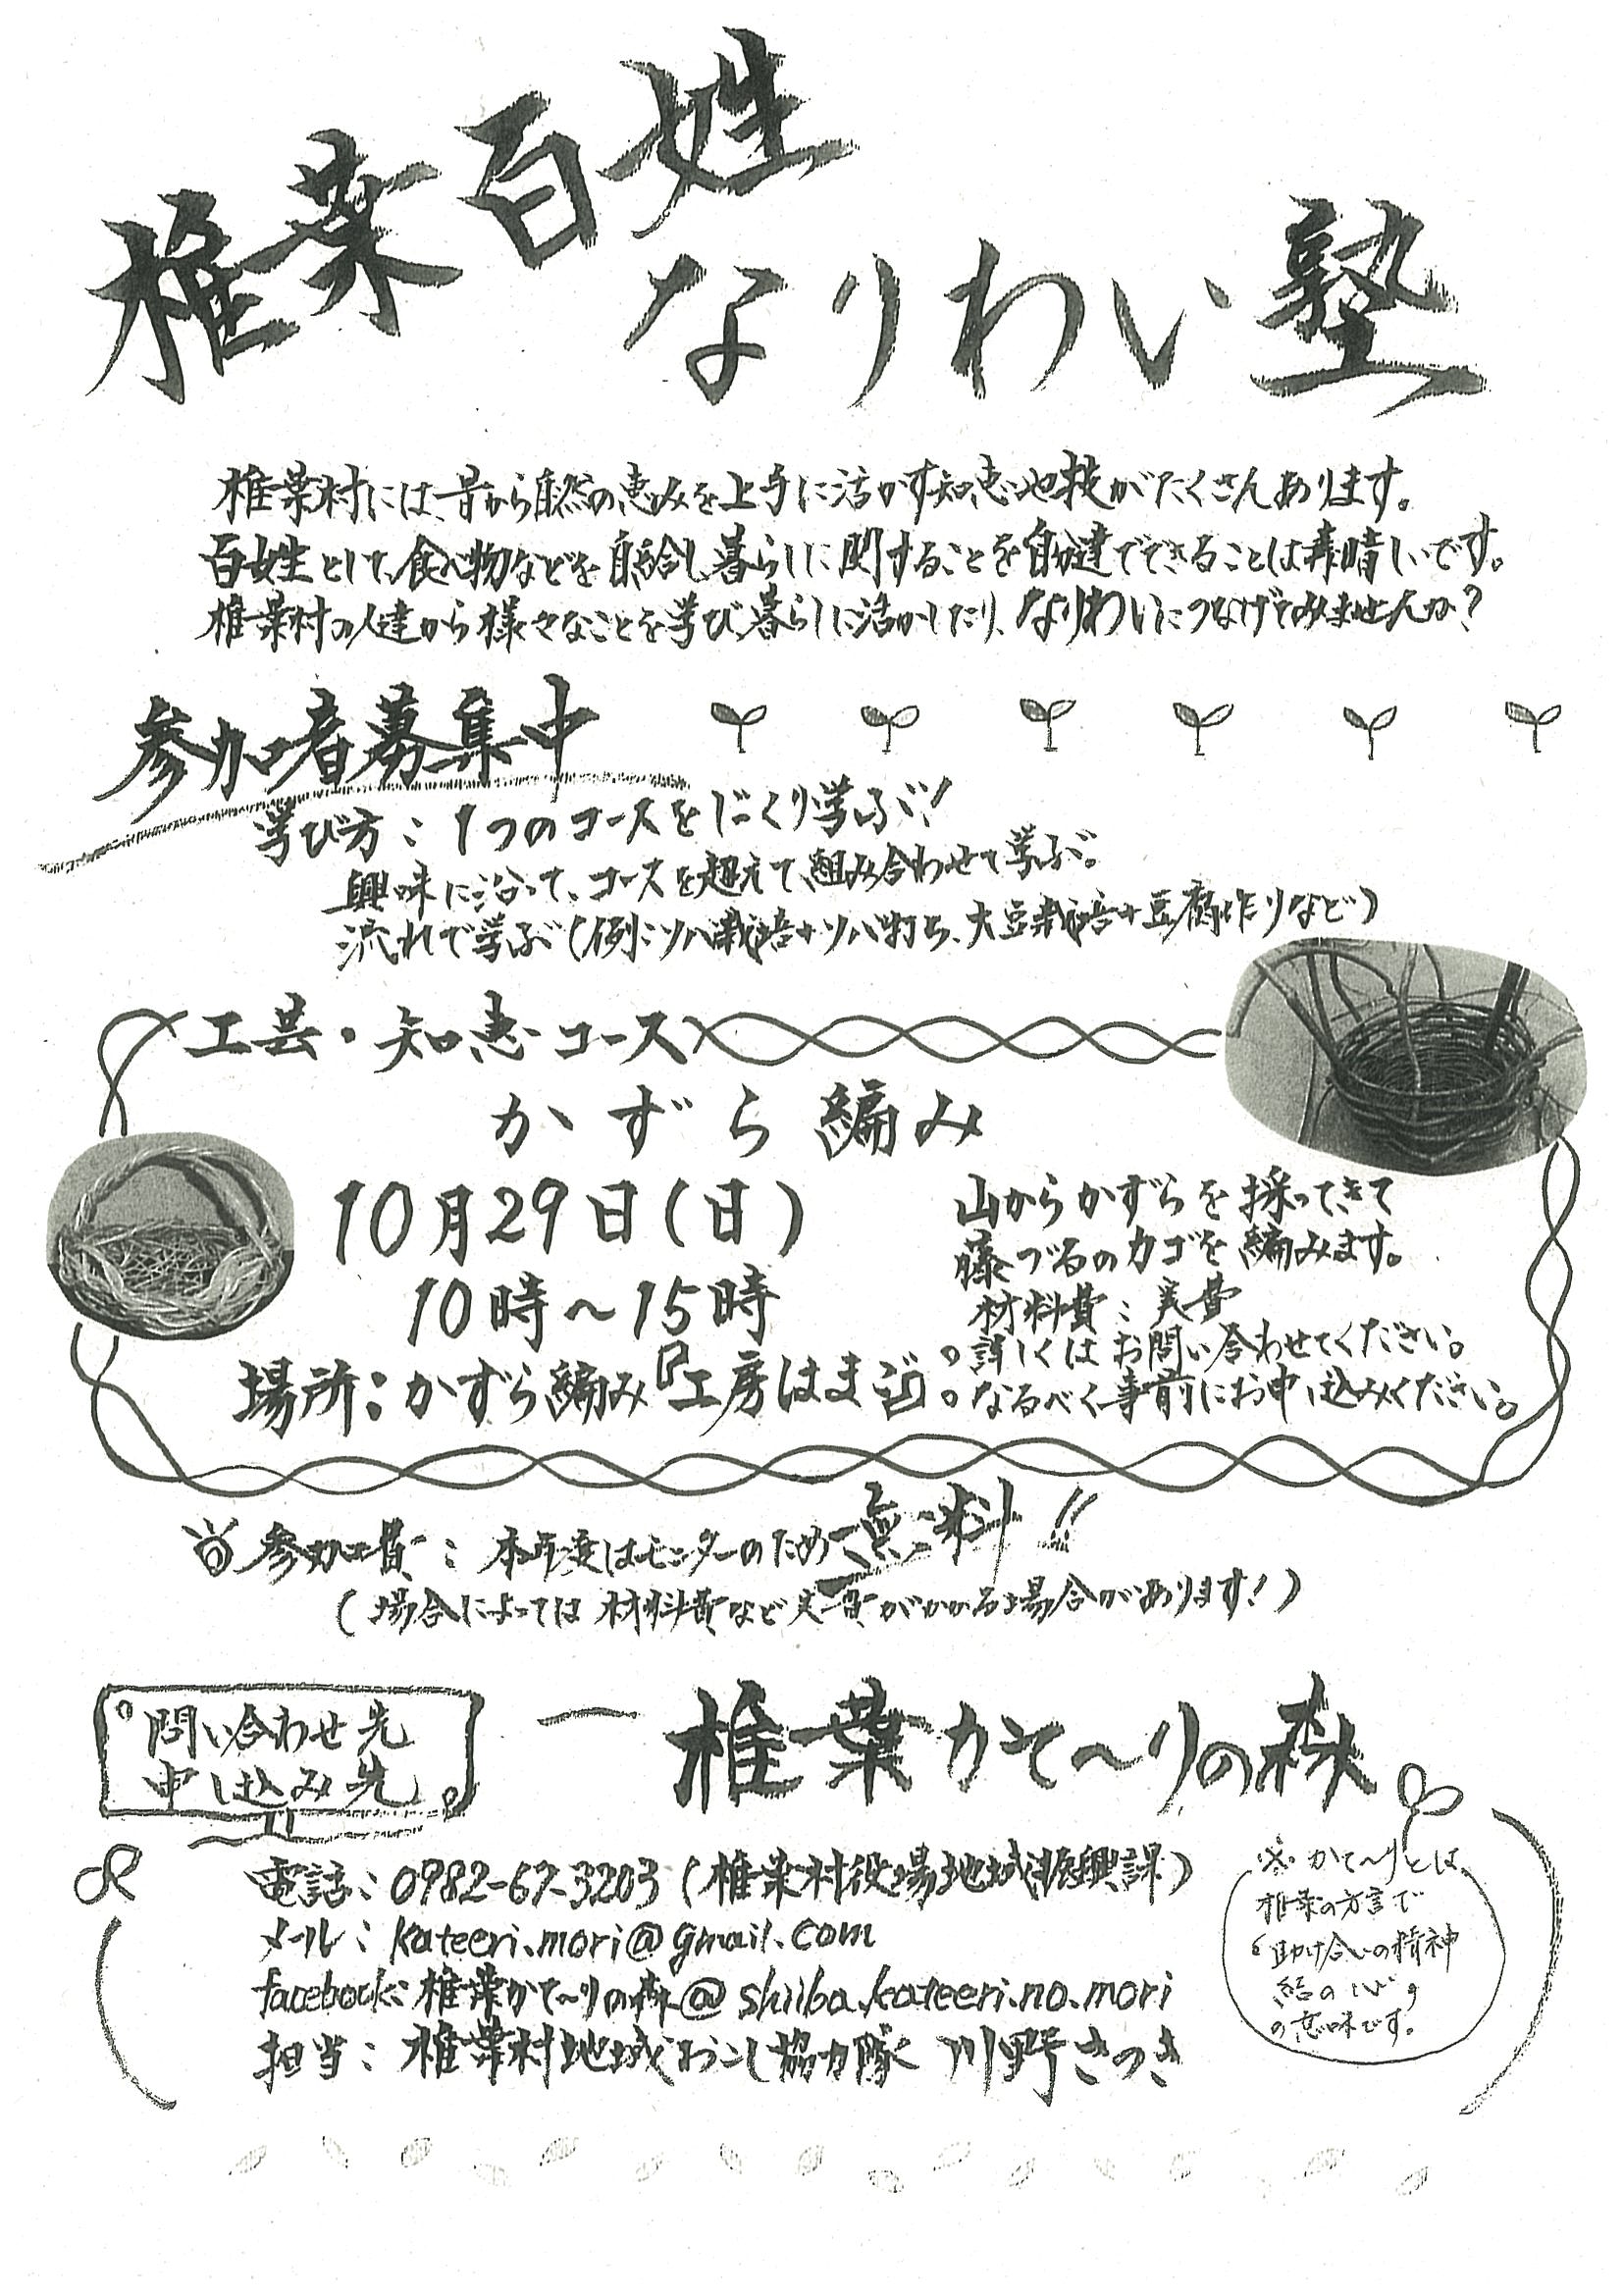 椎葉百姓
なりわい塾
椎葉村には昔から自然の恵みを上手に活かす知恵や技がたくさんあります。
百姓として、食べ物などを自給し暮らしに関することを自分達でできることは素晴しいです。
椎葉村の人達から様々なことを学び、暮らしに活かしたり、なりわいにつなげてみませんか?
参加者募集中
学び方:1つのコースをじっくり学ぶ!
興味に沿って、コースを超えて、組み合わせて学ぶ。
流れで学ぶ(例:ソバ栽培+ソバ打ち、大豆栽培+豆腐作りなど)
工芸・知恵コース
かずら編み
10月29日(日)
10時~15時
場所:かずら編み『工房はまご』
山からかずらを採ってきて
藤づるのカゴを編みます。
材料費:実費
詳しくはお問い合わせてください。
なるべく事前にお申し込みください。
参加費:本年度はモニターのため無料!!
(場合によっては材料費など実費がかかる場合があります!)
問い合わせ先
申し込み先
椎葉かて~りの森
電話:0982-67-3203(椎葉村役場地域振興課)
メール:kateeri.mori@gmail.com
facebook:椎葉かて~りの森@shiiba.kateeri.no.mori
担当:椎葉村地域おこし協力隊 川野さつき
※かて~りとは、
椎葉の方言で
"助け合いの精神
結の心"
の意味です。